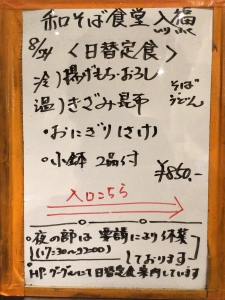 和そば食堂 入福
8/31 〈日替定食〉
冷)揚げもち・おろし
温)きざみ昆布
そば
うどん
・おにぎり(さけ)
・小鉢 2品付
¥850.-
入口こちら
・夜の部は 要請により休業
(17:30〜22:00)しております
HP.グーグルにて日替定食案内しています